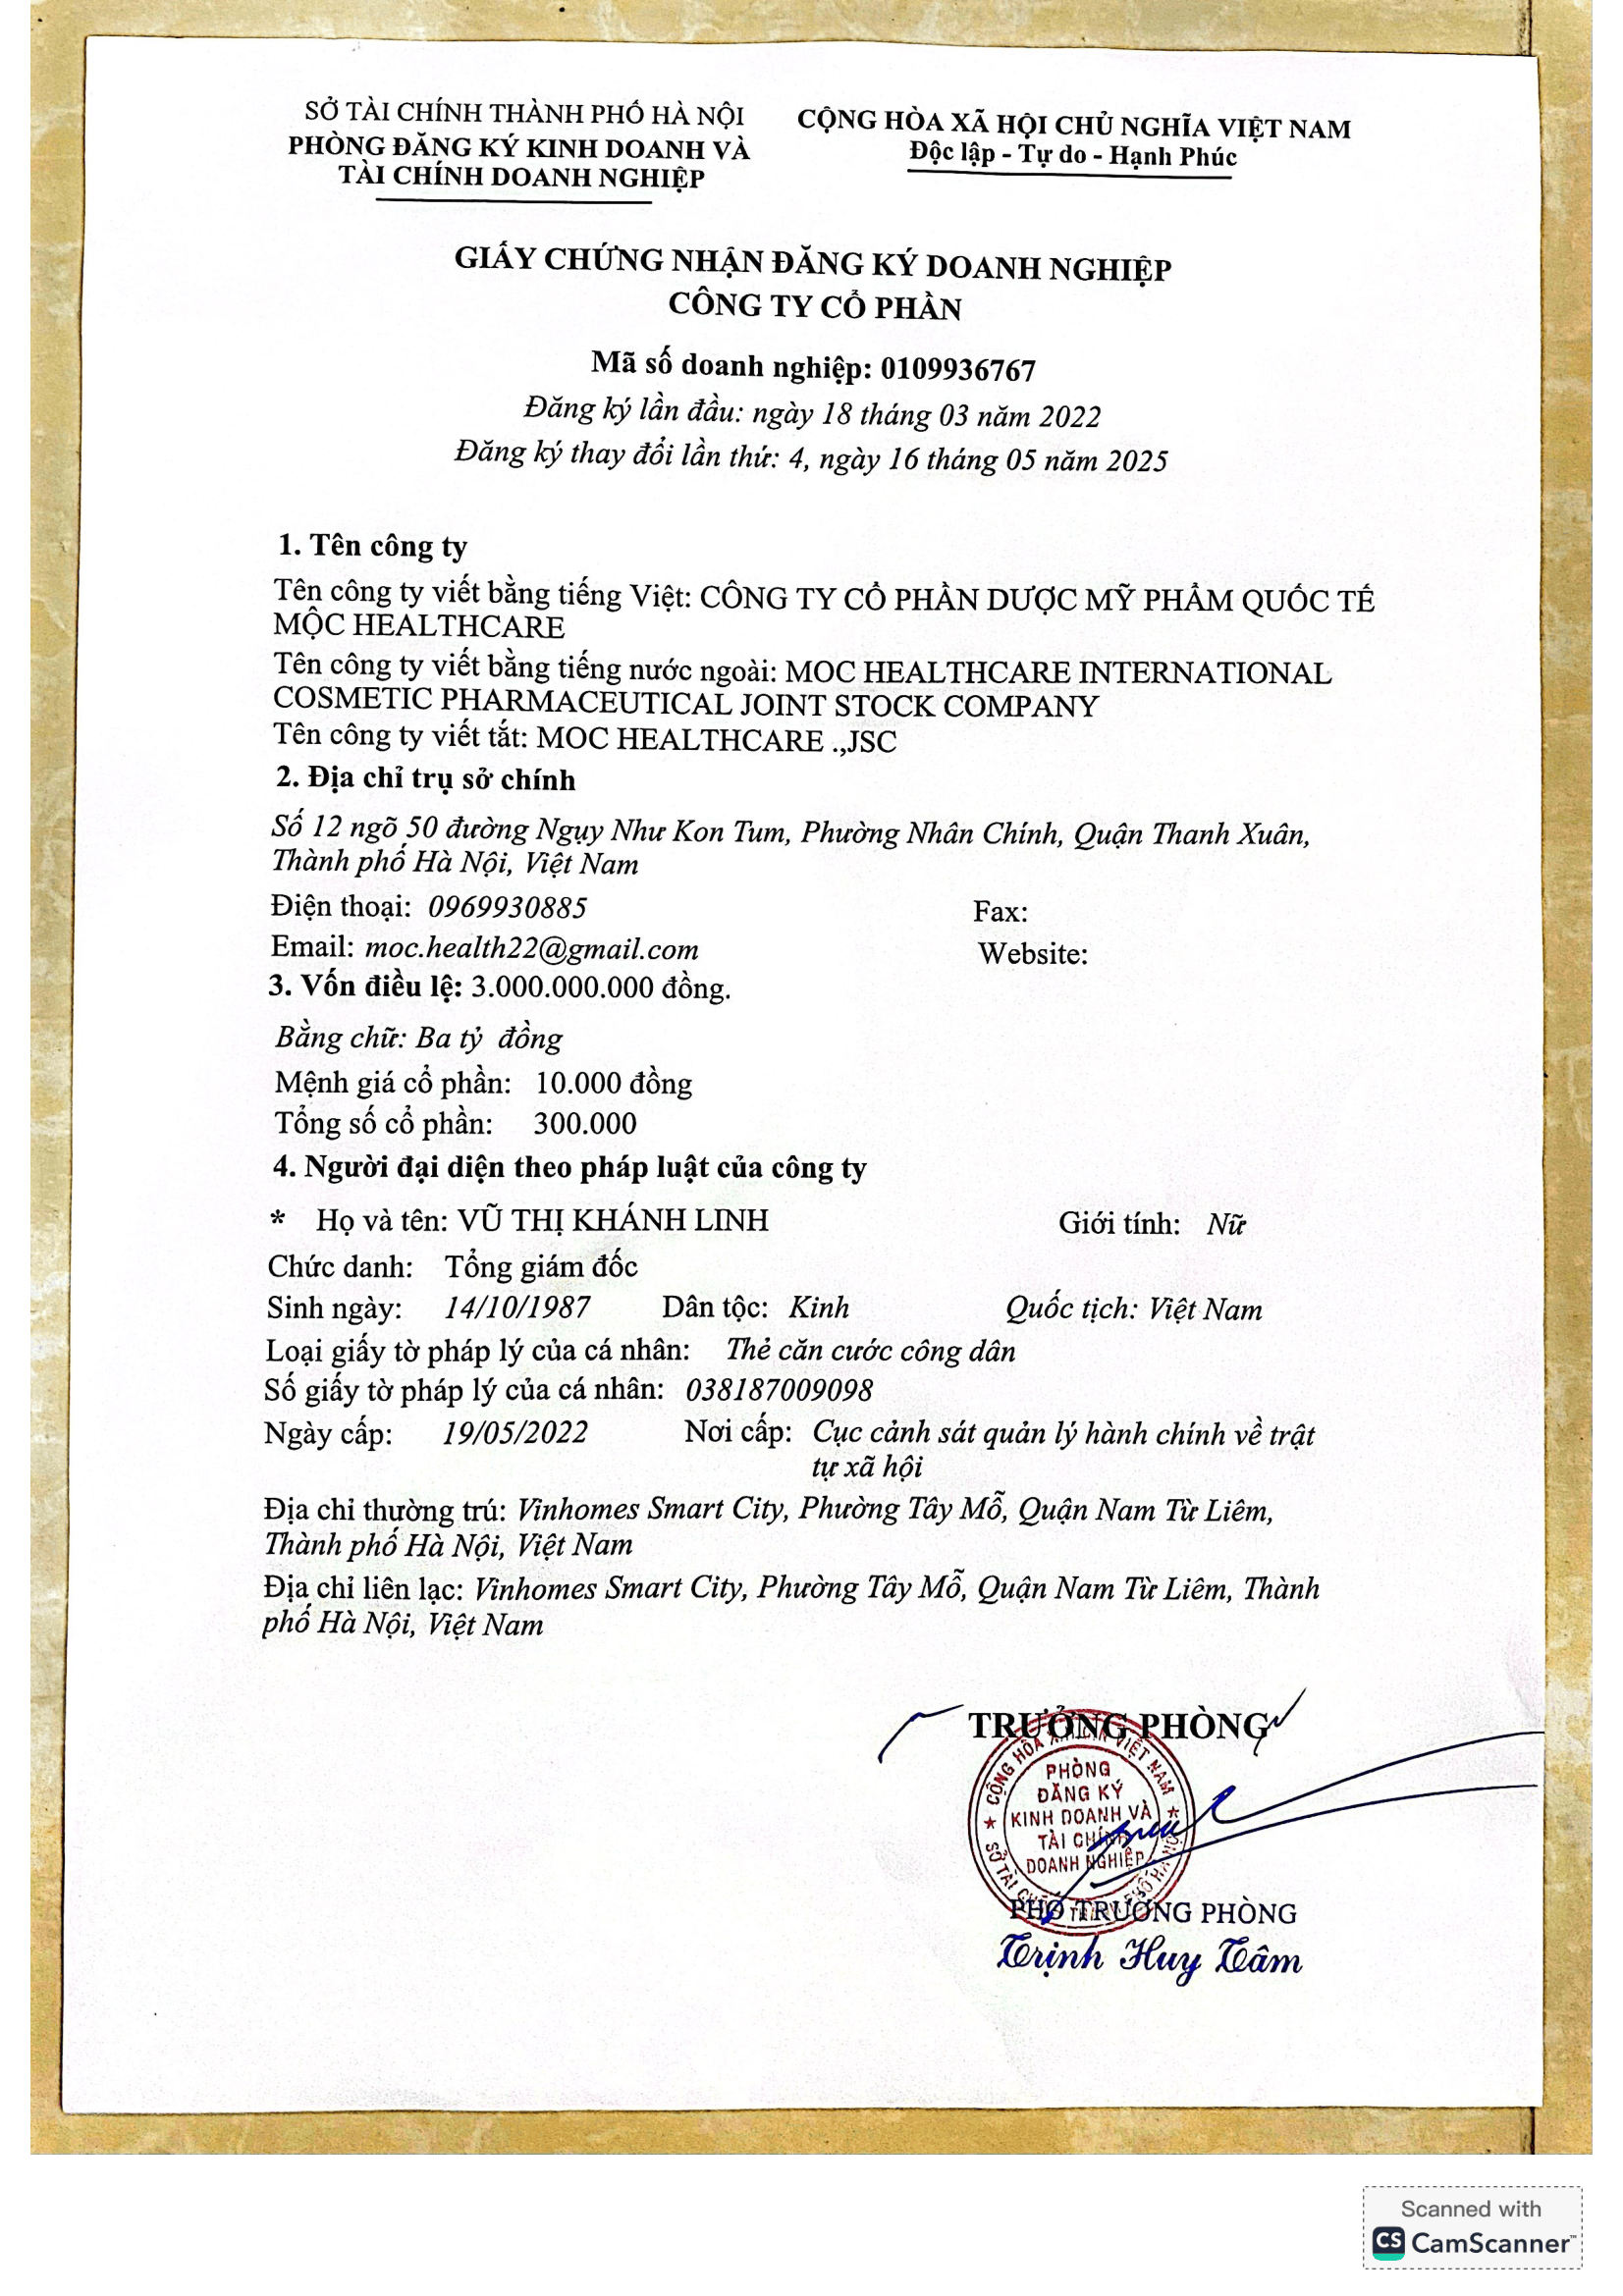 SỞ TÀI CHÍNH THÀNH PHỐ HÀ NỘI
PHÒNG ĐĂNG KÝ KINH DOANH VÀ
TÀI CHÍNH DOANH NGHIỆP
CỘNG HÒA XÃ HỘI CHỦ NGHĨA VIỆT NAM
Độc lập - Tự do - Hạnh Phúc
GIẤY CHỨNG NHẬN ĐĂNG KÝ DOANH NGHIỆP
CÔNG TY CỔ PHẦN
Mã số doanh nghiệp: 0109936767
Đăng ký lần đầu: ngày 18 tháng 03 năm 2022
Đăng ký thay đổi lần thứ: 4, ngày 16 tháng 05 năm 2025
1. Tên công ty
Tên công ty viết bằng tiếng Việt: CÔNG TY CỔ PHẦN DƯỢC MỸ PHẨM QUỐC TẾ
MỘC HEALTHCARE
Tên công ty viết bằng tiếng nước ngoài: MOC HEALTHCARE INTERNATIONAL
COSMETIC PHARMACEUTICAL JOINT STOCK COMPANY
Tên công ty viết tắt: MOC HEALTHCARE .,JSC
2. Địa chỉ trụ sở chính
Số 12 ngõ 50 đường Ngụy Như Kon Tum, Phường Nhân Chính, Quận Thanh Xuân,
Thành phố Hà Nội, Việt Nam
Điện thoại: 0969930885 Fax:
Email: moc.health22@gmail.com Website:
3. Vốn điều lệ: 3.000.000.000 đồng.
Bằng chữ: Ba tỷ đồng
Mệnh giá cổ phần: 10.000 đồng
Tổng số cổ phần: 300.000
4. Người đại diện theo pháp luật của công ty
* Họ và tên: VŨ THỊ KHÁNH LINH Giới tính: Nữ
Chức danh: Tổng giám đốc
Sinh ngày: 14/10/1987 Dân tộc: Kinh Quốc tịch: Việt Nam
Loại giấy tờ pháp lý của cá nhân: Thẻ căn cước công dân
Số giấy tờ pháp lý của cá nhân: 038187009098
Ngày cấp: 19/05/2022 Nơi cấp: Cục cảnh sát quản lý hành chính về trật
tự xã hội
Địa chỉ thường trú: Vinhomes Smart City, Phường Tây Mỗ, Quận Nam Từ Liêm,
Thành phố Hà Nội, Việt Nam
Địa chỉ liên lạc: Vinhomes Smart City, Phường Tây Mỗ, Quận Nam Từ Liêm, Thành
phố Hà Nội, Việt Nam
TRƯỞNG PHÒNG
CỘNG HÒA X.H.C.N VIỆT NAM
PHÒNG
ĐĂNG KÝ
KINH DOANH VÀ
TÀI CHÍNH
DOANH NGHIỆP
SỞ TÀI CHÍNH THÀNH PHỐ HÀ NỘI
PHÓ TRƯỞNG PHÒNG
Trịnh Huy Tâm
Scanned with
CS CamScanner™